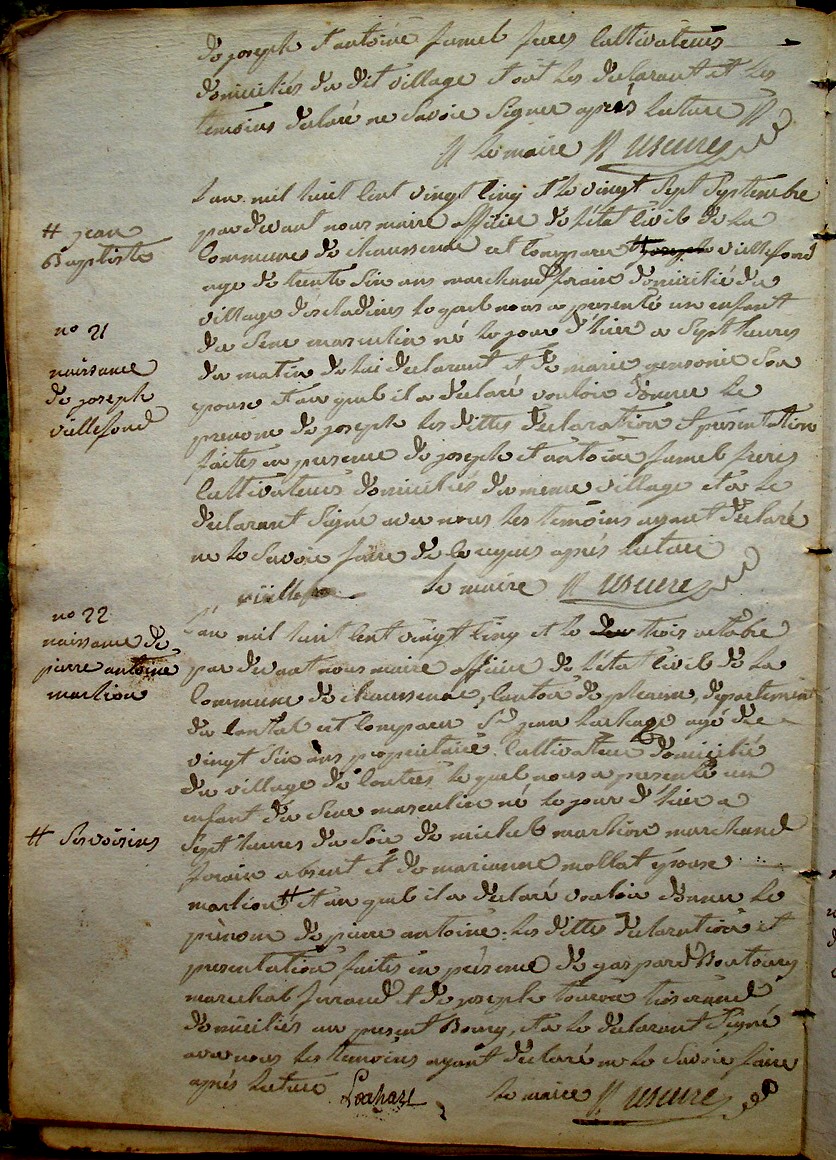 de joseph et antoine jumel freres Cultivateurs
domiciliés du dit village et ont les declarant et les
temoins declaré ne Savoir Signer aprés lecture
le maire usure
L'an mil huit Cent vingt Cinq et le vingt Sept Septembre
pardevant nous maire officier de l'état Civil de la
# jean
Baptiste
Commune de chaussenac est Comparu # joseph viellefond
age de trente Six ans marchand forain domicilié du
village d'escladines lequel nous a presenté un enfant
no 21
naissance
de joseph
viellefond
du Sexe masculin né le jour d'hier a Sept heures
du matin de lui declarant et de marie Son
epouse et au quel il a declaré vouloir donner le
prenom de joseph les dittes declaration et présentation
faites en presence de joseph et antoine jumel freres
Cultivateurs domiciliés du meme village et a le
declarant Signé avec nous les temoins ayant declaré
ne le Savoir faire de ce requis aprés lecture
viellefon le maire usure
no 22
naissance de
pierre antoine
martion
L'an mil huit Cent vingt Cinq et le deu trois octobre
par devant nous maire officier de l'état Civil de la
Commune de chaussenac, Canton de pleaux, departement
du Cantal est Comparu Sr jean Lachaze agé de
vingt Six ans proprietaire Cultivateur domicilié
du village de Contres le quel nous a presenté un
enfant du Sexe masculin né le jour d'hier a
# Ses voisins
Sept heures du Soir de michel martion marchand
forain absent et de marianne mollat epouse
martion # et au quel il a declaré vouloir donner le
prénom de pierre antoine. les dittes declaration et
presentation faites en présence de gaspard
marechal ferrand et de joseph tisserand
domiciliés au present Bourg, et a le declarant Signé
avec nous les temoins ayant declaré ne le Savoir faire
aprés lecture Lachaze le maire usure